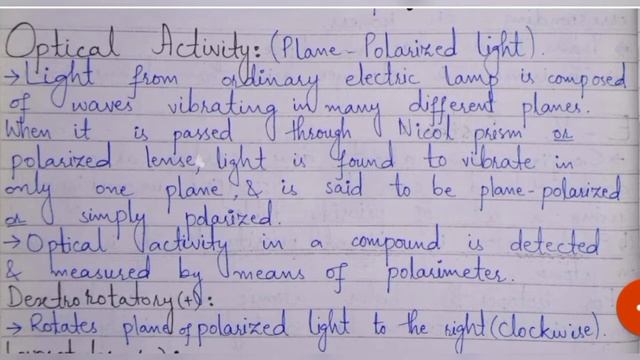 Optical Activity: (Plane-Polarized light).
→ Light from ordinary electric lamp is composed
of waves vibrating in many different planes.
When it is passed through Nicol prism or
polarized lense, light is found to vibrate in
only one plane, & is said to be plane-polarized
or simply polarized.
→ Optical activity in a compound is detected
& measured by means of polarimeter.
Dextrorotatory (+):
→ Rotates plane of polarized light to the right (Clockwise).